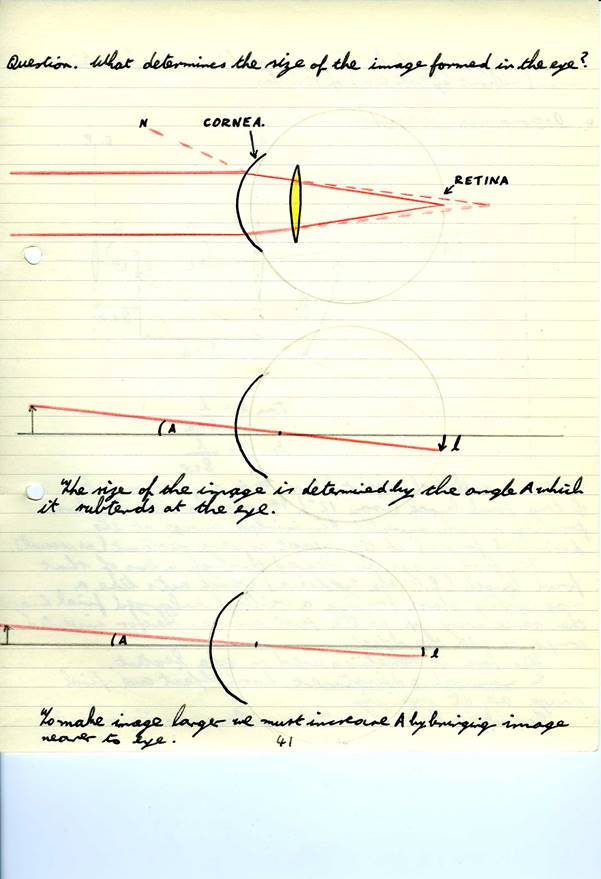 Question. What determines the size of the image formed in the eye?
N
CORNEA.
RETINA
A
l
The size of the image is determined by the angle A which
it subtends at the eye.
A
l
To make image larger we must increase A by bringing image
nearer to eye.
41